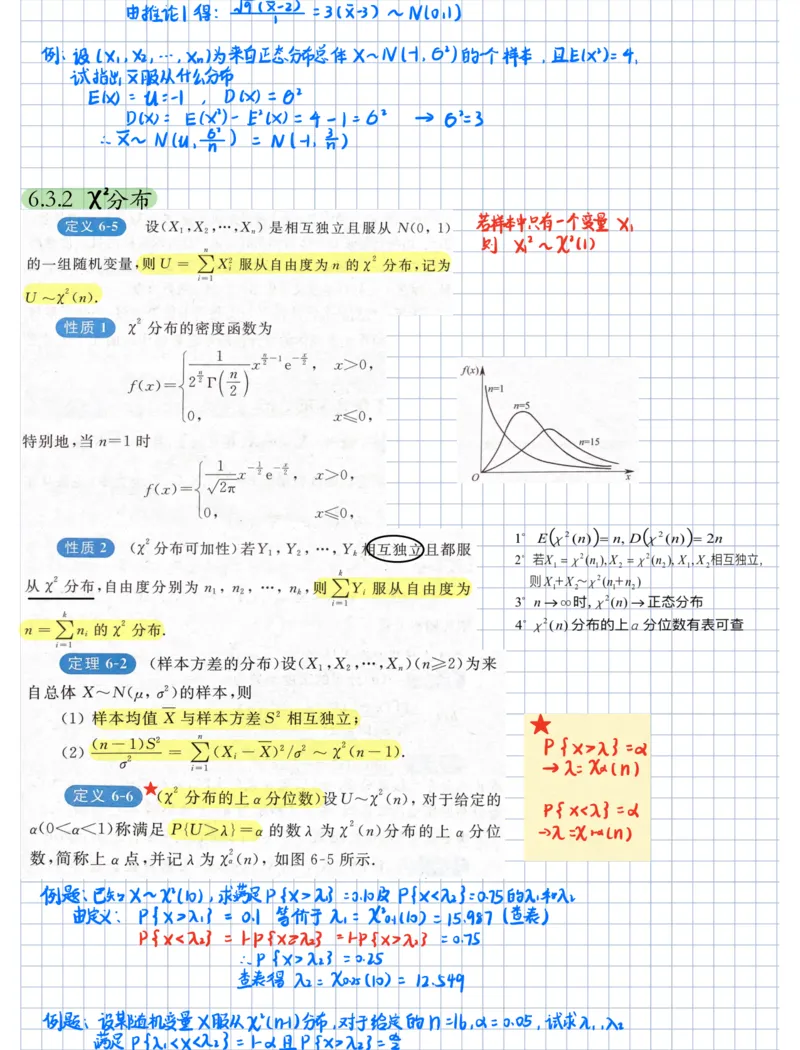 由推论1得: √9(x̄-2)/1 = 3(x̄-3) ~ N(0,1)
例: 设(X₁, X₂, ⋯, Xₙ)为来自正态分布总体 X~N(-1, 6²)的个样本, 且E(X²)=4,
试指出 X̄服从什么分布
E(X) = u = -1 , D(X) = 6²
D(X) = E(X²) - E²(X) = 4 - 1 = 6² → 6²=3
∴ X̄ ~ N(u, 6²/n) = N(-1, 3/n)
6.3.2 χ²分布
定义 6-5 设(X₁,X₂,⋯,Xₙ) 是相互独立且服从 N(0, 1)
的一组随机变量,则 U = ∑ᵢ₌₁ⁿ Xᵢ² 服从自由度为 n 的 χ² 分布,记为
U ~χ²(n).
若样本中只有一个变量 X₁
则 X₁² ~ χ²(1)
性质 1 χ² 分布的密度函数为
f(x)={ 1/(2^(n/2) Γ(n/2)) x^(n/2-1) e^(-x/2), x>0,
0, x≤0,
特别地,当 n=1 时
f(x)={ 1/√2π x^(-1/2) e^(-x/2), x>0,
0, x≤0,
f(x)
n=1
n=5
n=15
O x
性质 2 (χ² 分布可加性)若Y₁, Y₂, ⋯, Yₖ 相互独立且都服
从 χ² 分布,自由度分别为 n₁, n₂, ⋯, nₖ,则 ∑ᵢ₌₁ᵏ Yᵢ 服从自由度为
n = ∑ᵢ₌₁ᵏ nᵢ 的 χ² 分布.
1° E(χ²(n)) = n, D(χ²(n)) = 2n
2° 若X₁ = χ²(n₁), X₂ = χ²(n₂), X₁, X₂相互独立,
则X₁+X₂~χ²(n₁+n₂)
3° n→∞时, χ²(n)→正态分布
4° χ²(n)分布的上α分位数有表可查
定理 6-2 (样本方差的分布)设(X₁,X₂,⋯,Xₙ)(n≥2)为来
自总体 X~N(μ, σ²)的样本,则
(1) 样本均值 X̄ 与样本方差 S² 相互独立;
(2) (n-1)S²/σ² = ∑ᵢ₌₁ⁿ (Xᵢ-X̄)²/σ² ~ χ²(n-1).
★
P{X>λ}=α
→ λ=χα(n)
P{X<λ}=α
→λ=χ1-α(n)
定义 6-6 ★(χ² 分布的上 α 分位数)设U~χ²(n), 对于给定的
α(0<α<1)称满足 P{U>λ}=α 的数 λ 为 χ²(n)分布的上 α 分位
数,简称上 α 点,并记 λ 为 χ²α(n), 如图 6-5 所示.
例题: 已知X~χ²(10), 求满足P{X>λ₁}=0.10及P{X<λ₂}=0.75的λ₁和λ₂
由定义: P{X>λ₁} = 0.1 等价于 λ₁ = χ²0.1(10) = 15.987 (查表)
P{X<λ₂} = 1-P{X≥λ₂} = 1-P{X>λ₂} = 0.75
∴P{X>λ₂} = 0.25
查表得 λ₂ = χ0.25(10) = 12.549
例题: 设某随机变量 X服从χ²(n-1)分布, 对于给定的n=16, α=0.05, 试求λ₁, λ₂
满足 P{λ₁<X<λ₂} = 1-α 且 P{X>λ₂} = α/2